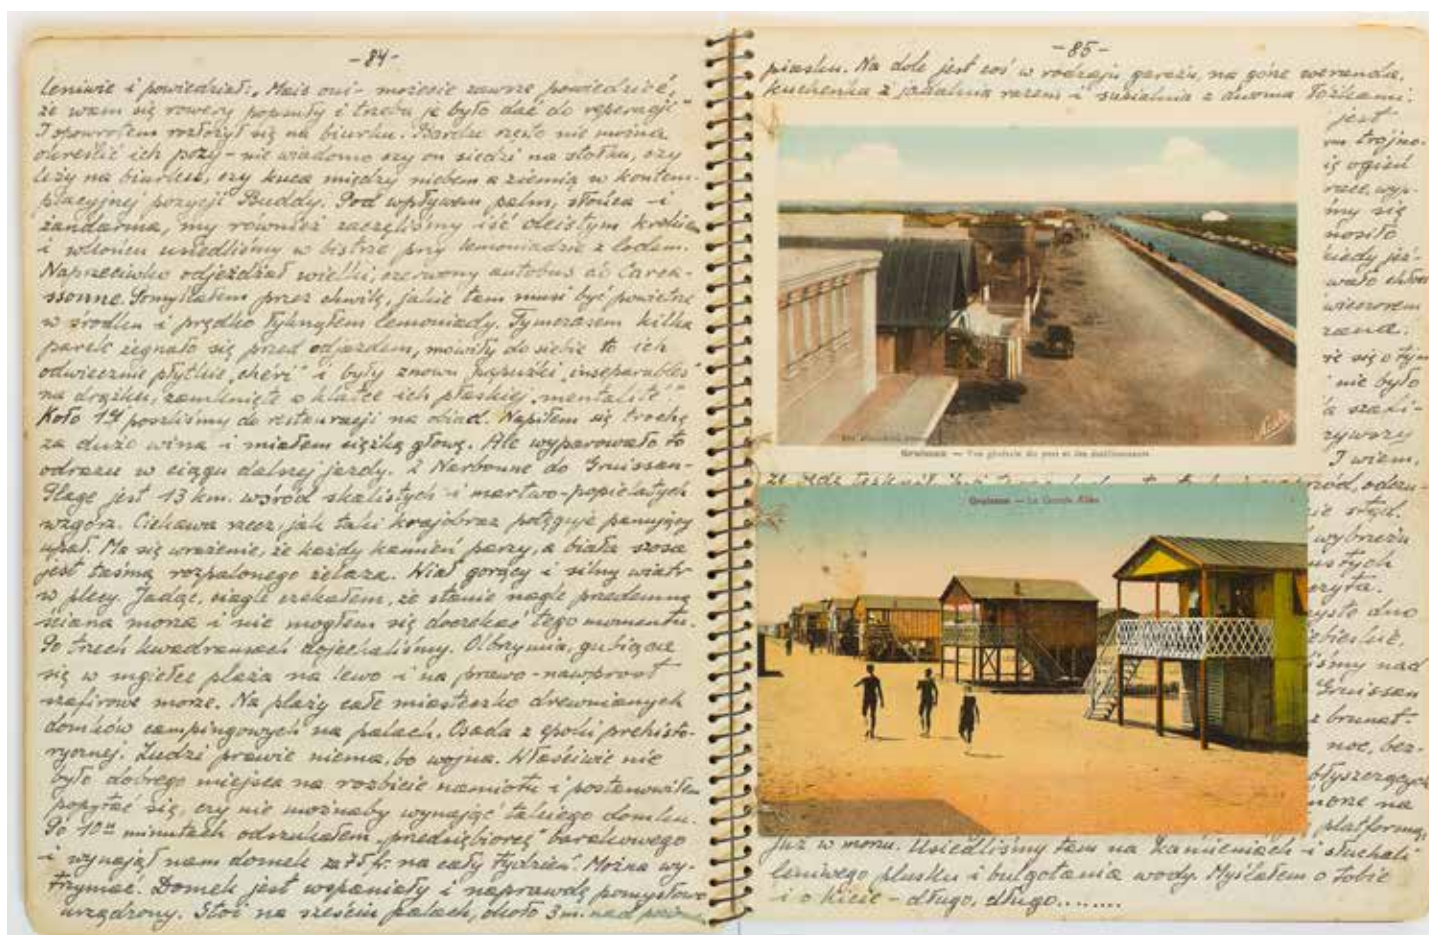 -84-
leniwie i powiedział: „Mais oui - możecie zawsze powiedzieć,
że wam się rowery popsuły i trzeba je było dać do reperacji"
I spowrotem rozłożył się na biurku. Bardzo często nie można
określić ich pozy - nie wiadomo czy on siedzi na stołku, czy
leży na biurku, czy kuca między niebem a ziemią w kontem-
placyjnej pozycji Buddy. Pod wpływem palm, słońca - i
żandarma, my również zaczęliśmy iść oleistym krokiem
i wkońcu usiedliśmy w bistrze przy lemoniadzie z lodem.
Naprzeciwko odjeżdżał wielki, czerwony autobus do Carca-
ssonne. Pomyślałem przez chwilę, jakie tam musi być powietrze
w środku i prędko łyknąłem lemoniady. Tymczasem kilka
parek żegnało się przed odjazdem, mówiły do siebie te ich
odwiecznie płytkie „chéri" i były znowu papużki „inseparables"
na drążku, zamknięte w klatce ich płaskiej „mentalité".
Koło 1ej poszliśmy do restauracji na obiad. Napiłem się trochę
za dużo wina - i miałem ciężką głowę. Ale wyparowało to
odrazu w ciągu dalszej jazdy. Z Narbonne do Gruissan-
Plage jest 13 km. wśród skalistych - i martwo-popielatych
wzgórz. Ciekawa rzecz, jak taki krajobraz potęguje panujący
upał. Ma się wrażenie, że każdy kamień parzy, a biała szosa
jest taśmą rozpalonego żelaza. Wiał gorący i silny wiatr
w plecy. Jadąc, ciągle czekałem, że stanie nagle przedemną
ściana morza i nie mogłem się doczekać tego momentu.
Po trzech kwadransach dojechaliśmy. Olbrzymia, gubiąca
się w mgiełce plaża na lewo - i na prawo - nawprost
szafirowe morze. Na plaży całe miasteczko drewnianych
domków campingowych na palach. Osada z epoki prehisto-
rycznej. Ludzi prawie niema, bo wojna. Właściwie nie
było dobrego miejsca na rozbicie namiotu i postanowiłem
popytać się, czy nie możnaby wynająć takiego domku.
Po 10u minutach odszukałem „przedsiębiorcę" barakowego
- i wynajął nam domek za 75 fr. na cały tydzień. Można wy-
trzymać. Domek jest wspaniały i naprawdę pomysłowo
urządzony. Stoi na sześciu palach, około 3 m. nad
-85-
piasku. Na dole jest coś w rodzaju garażu, na górze weranda,
kuchenka z jadalnią razem i sypialnia z dwoma łóżkami.
jest
trójno-
ogień
wyp-
my się
nosiło
kiedy jeź-
wieczorem
się o tym
nie było
szafi-
I wiem,
Gruissan — Vue générale du port et des établissements
Gruissan — La Grande Allée
stąd.
wybrzeżu
dno
nad
Gruissan
brunat-
noc, bez-
błyszczących
na
platformą,
już w morzu. Usiedliśmy tam na kamieniach - i słuchali
leniwego plusku i bulgotania wody. Myślałem o Tobie
- i o Kicie - długo, długo........